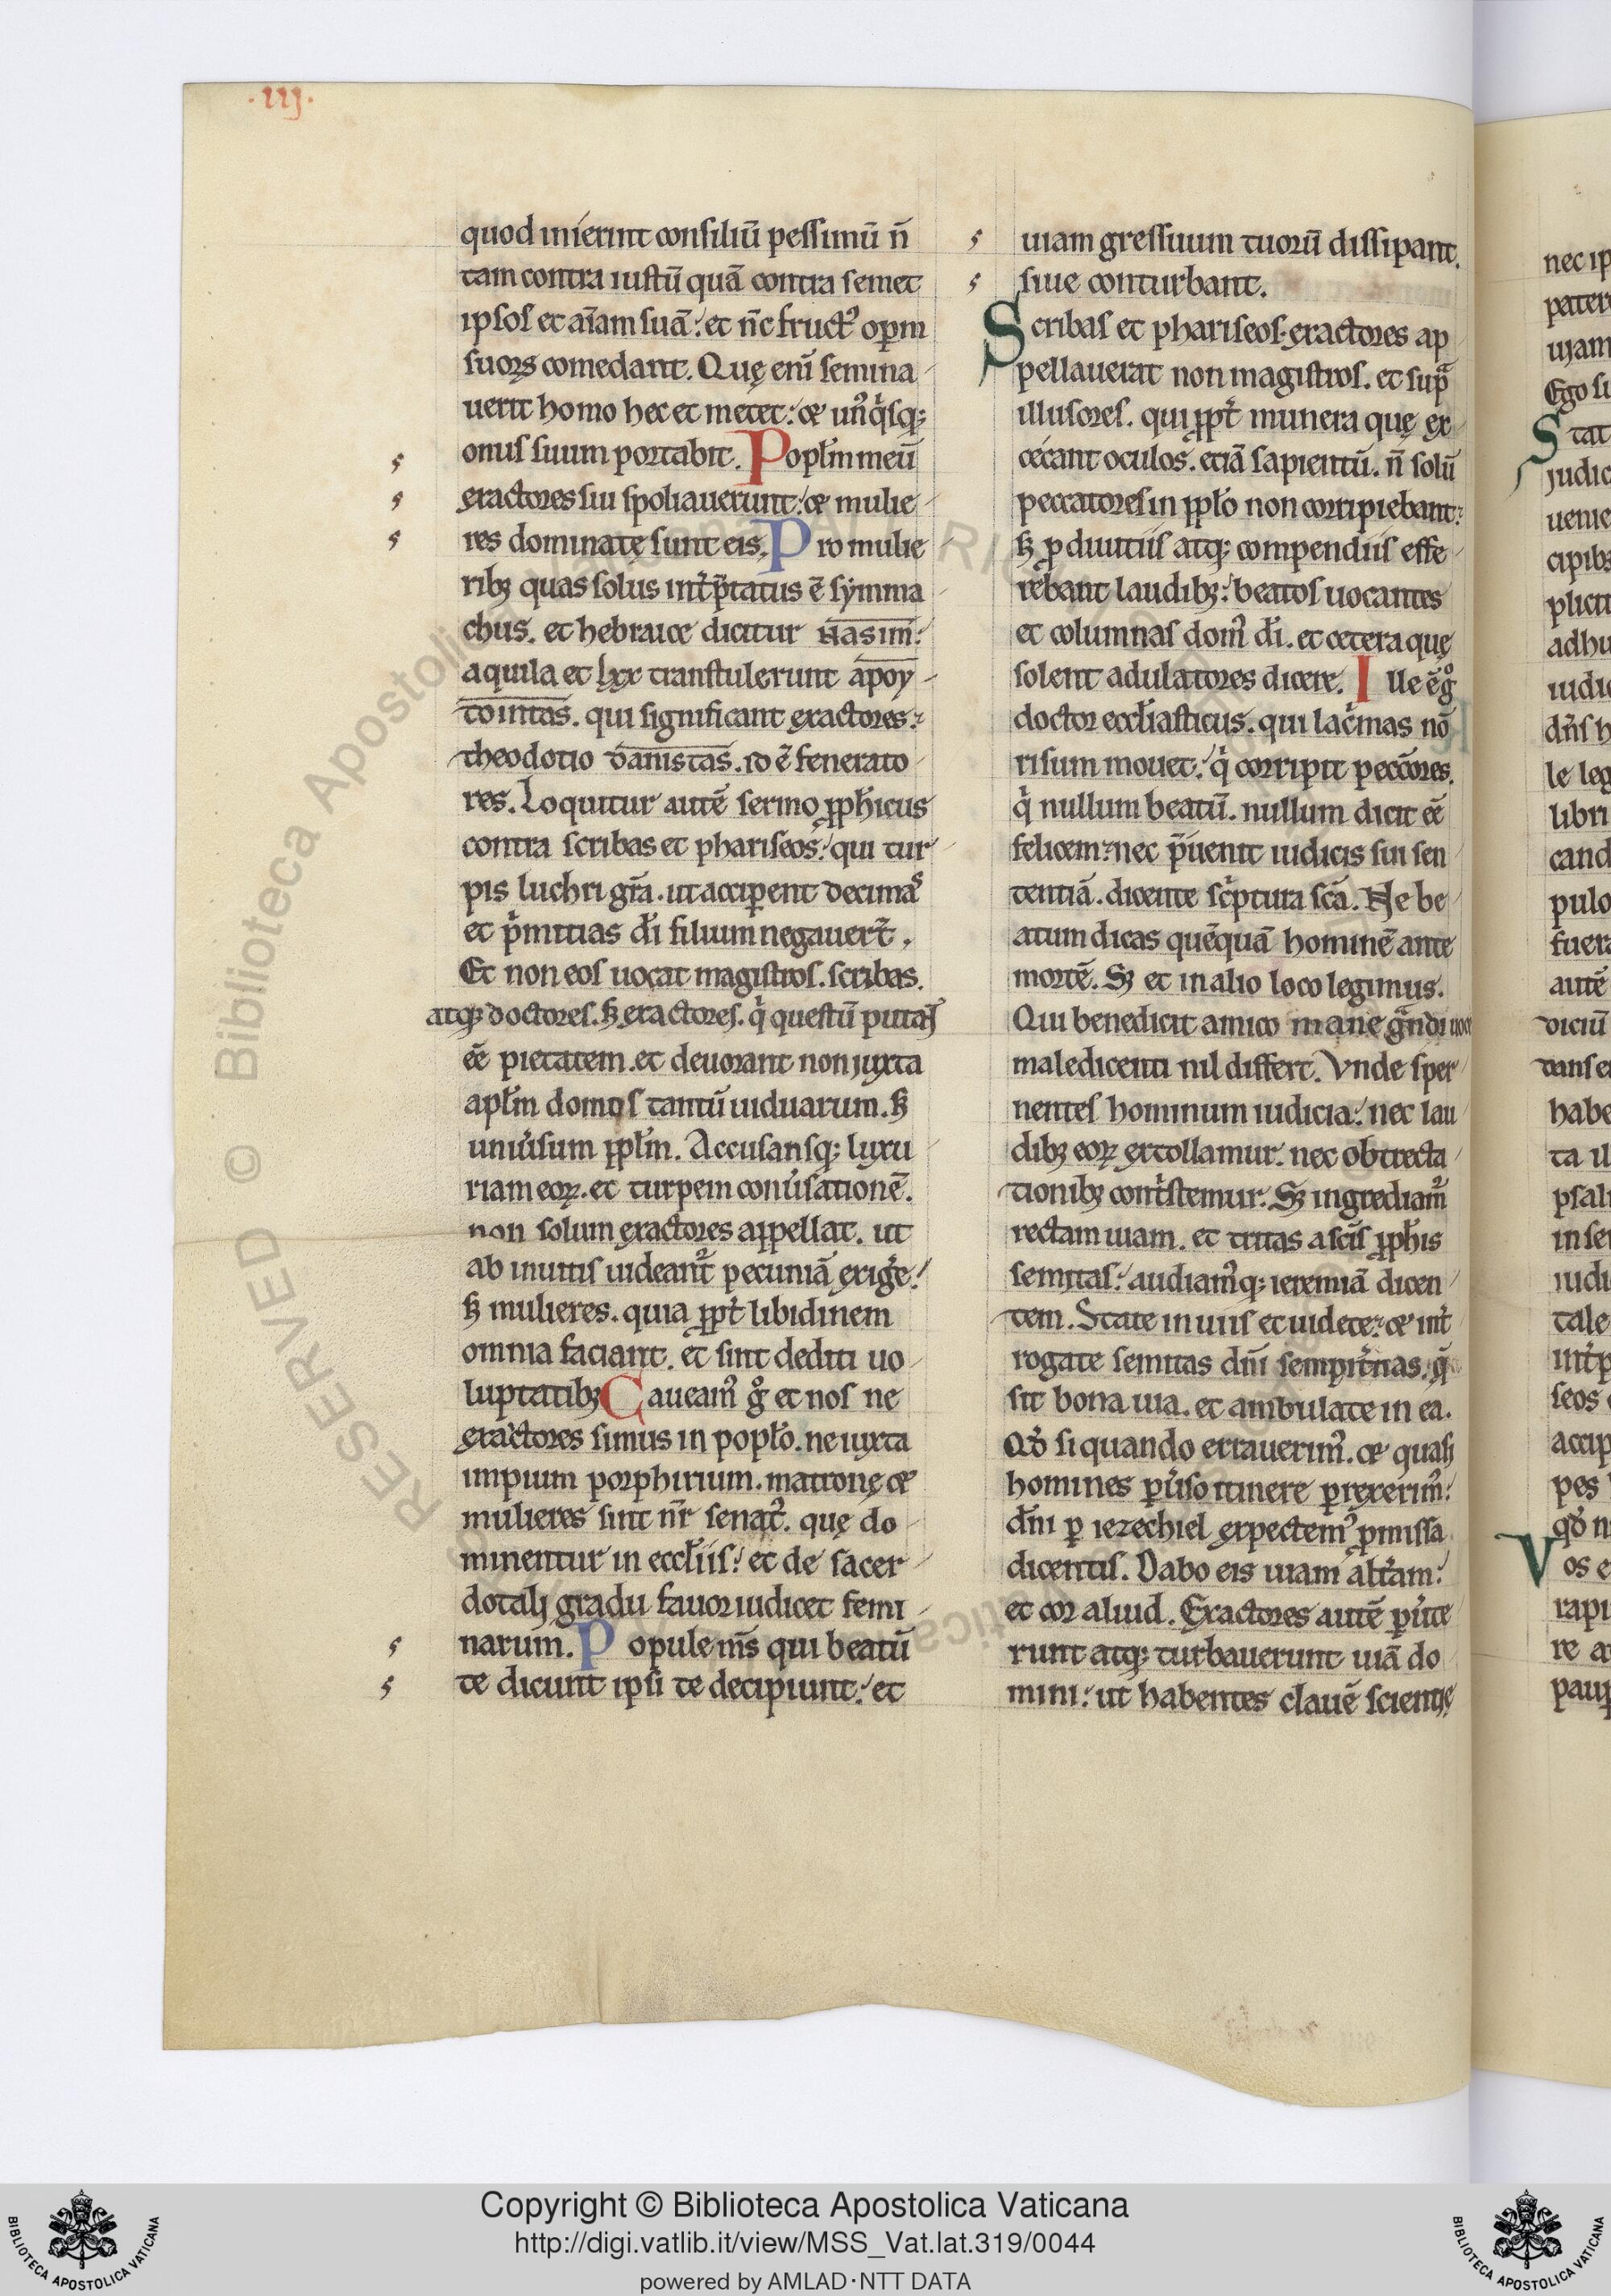 ·iij·
quod inierint consiliū pessimū n̄
tam contra iustū quā contra semet
ipsos et aīam suā: et n̄c fruct᾿ opꝝm
suoꝝ comedant. Quę eni᷑ semina
uerit homo hec et metet: & un᾿q̇sq;
onus suum portabit. Popłm meū
exactores sui spoliauerunt: & mulie
res dominatę sunt eis. Pro mulie
ribꝫ quas solus int̾p̄tatus ē symma
chus. et hebraice dicitur nasim:
aquila et lxx transtulerunt apoy
tointas. qui significant exactores:
theodotio danistas. id ē fenerato
res. Loquitur autē sermo ꝓph̄icus
contra scribas et phariseos: qui tur
pis luchri gr̄a. ut acciꝑent decimas
et ṗmitias dī filium negauer̄t.
Et non eos uocat magistros. scribas.
atq; doctores. sꝫ exactores. q̇ questū putant
ēē pietatem. et deuorant non juxta
apłm domos tantū uiduarum. sꝫ
uniu̾sum ꝓpłm. Accusansq; luxu
riam eoꝝ. et turpem conu̾sationē.
non solum exactores appellat. ut
ab inuitis uideant᷑ pecuniā exig̾e:
sꝫ mulieres. quia ꝓpt̾ libidinem
omnia faciant. et sint dediti uo
luptatibꝫ Caueam᾿ gͦ et nos ne
exactores simus in popło. ne iuxta
impium porphirium. matronę &
mulieres sint nr̄ senat᾿. quę do
minentur in eccłiis: et de sacer
dotalj gradu fauor iudicet femi
narum. Popule m̄s qui beatū
te dicunt ipsi te decipiunt: et
uiam gressuum tuorū dissipant.
siue conturbant.
Scribas et phariseos. exactores ap
pellauerat non magistros. et supᵃ
illusores. qui ꝓpt̾ munera quę ex
cecant oculos. etiā sapientū. n̄ solū
peccatores in ꝓpło non corripiebant:
sꝫ ꝓ diuitiis atq; compendiis effe
rebant laudibꝫ: beatos uocantes
et columnas dom᾿ dī. et cetera quę
solent adulatores dicere. Ille ē gͦ
doctor eccłiasticus. qui lac̾mas nō
risum mouet: q̇ corripit pecc̄ores.
q̇ nullum beatū. nullum dicit ēē
felicem: nec p̄uenit iudicis sui sen
tentiā. dicente sc̾ptura sc̄a. Ne be
atum dicas quēquā hominē ante
mortē. Sꝫ et in alio loco legimus.
Qui benedicit amico mane gᵃndi uoce
maledicenti nil differt. Vnde sper
nentes hominum iudicia: nec lau
dibꝫ eoꝝ extollamur. nec obtrecta
tionibꝫ cont̾stemur. Sꝫ ingrediam᷑
rectam uiam. et tritas a sc̄is ꝓph̄is
semitas: audiam᾿q; ieremiā dicen
tem. State in uiis et uidete: & int̾
rogate semitas dn̄i sempit̾nas. q̄
sit bona uia. et ambulate in ea.
Qd̾ si quando errauerim᾿. & quasj
homines ꝑu̾so itinere ꝑrexerim᾿:
dn̄i ꝑ iezechiel expectem᾿ ꝓmissa
dicentis. Dabo eis uiam alt̾am:
et cor aliud. Exactores autē ꝑu̾te
runt atq; turbauerunt uiā do
mini: ut habentes clauē scientię
nec ip
pater
ujam
Ego su
Stat
judic
uenie
cipibꝫ
plicit
adhu
iudic
dn̄s h
le leg
libri
cand
pulo
fuera
autē
diciū
danse
habe
ta il
psal
in se
iudi
tale
int̾p
seos
accip
pes
qd̾ n
Vos e
rapi
re a
paup
Copyright © Biblioteca Apostolica Vaticana
http://digi.vatlib.it/view/MSS_Vat.lat.319/0044
powered by AMLAD·NTT DATA
BIBLIOTECA APOSTOLICA VATICANA
BIBLIOTECA APOSTOLICA VATICANA